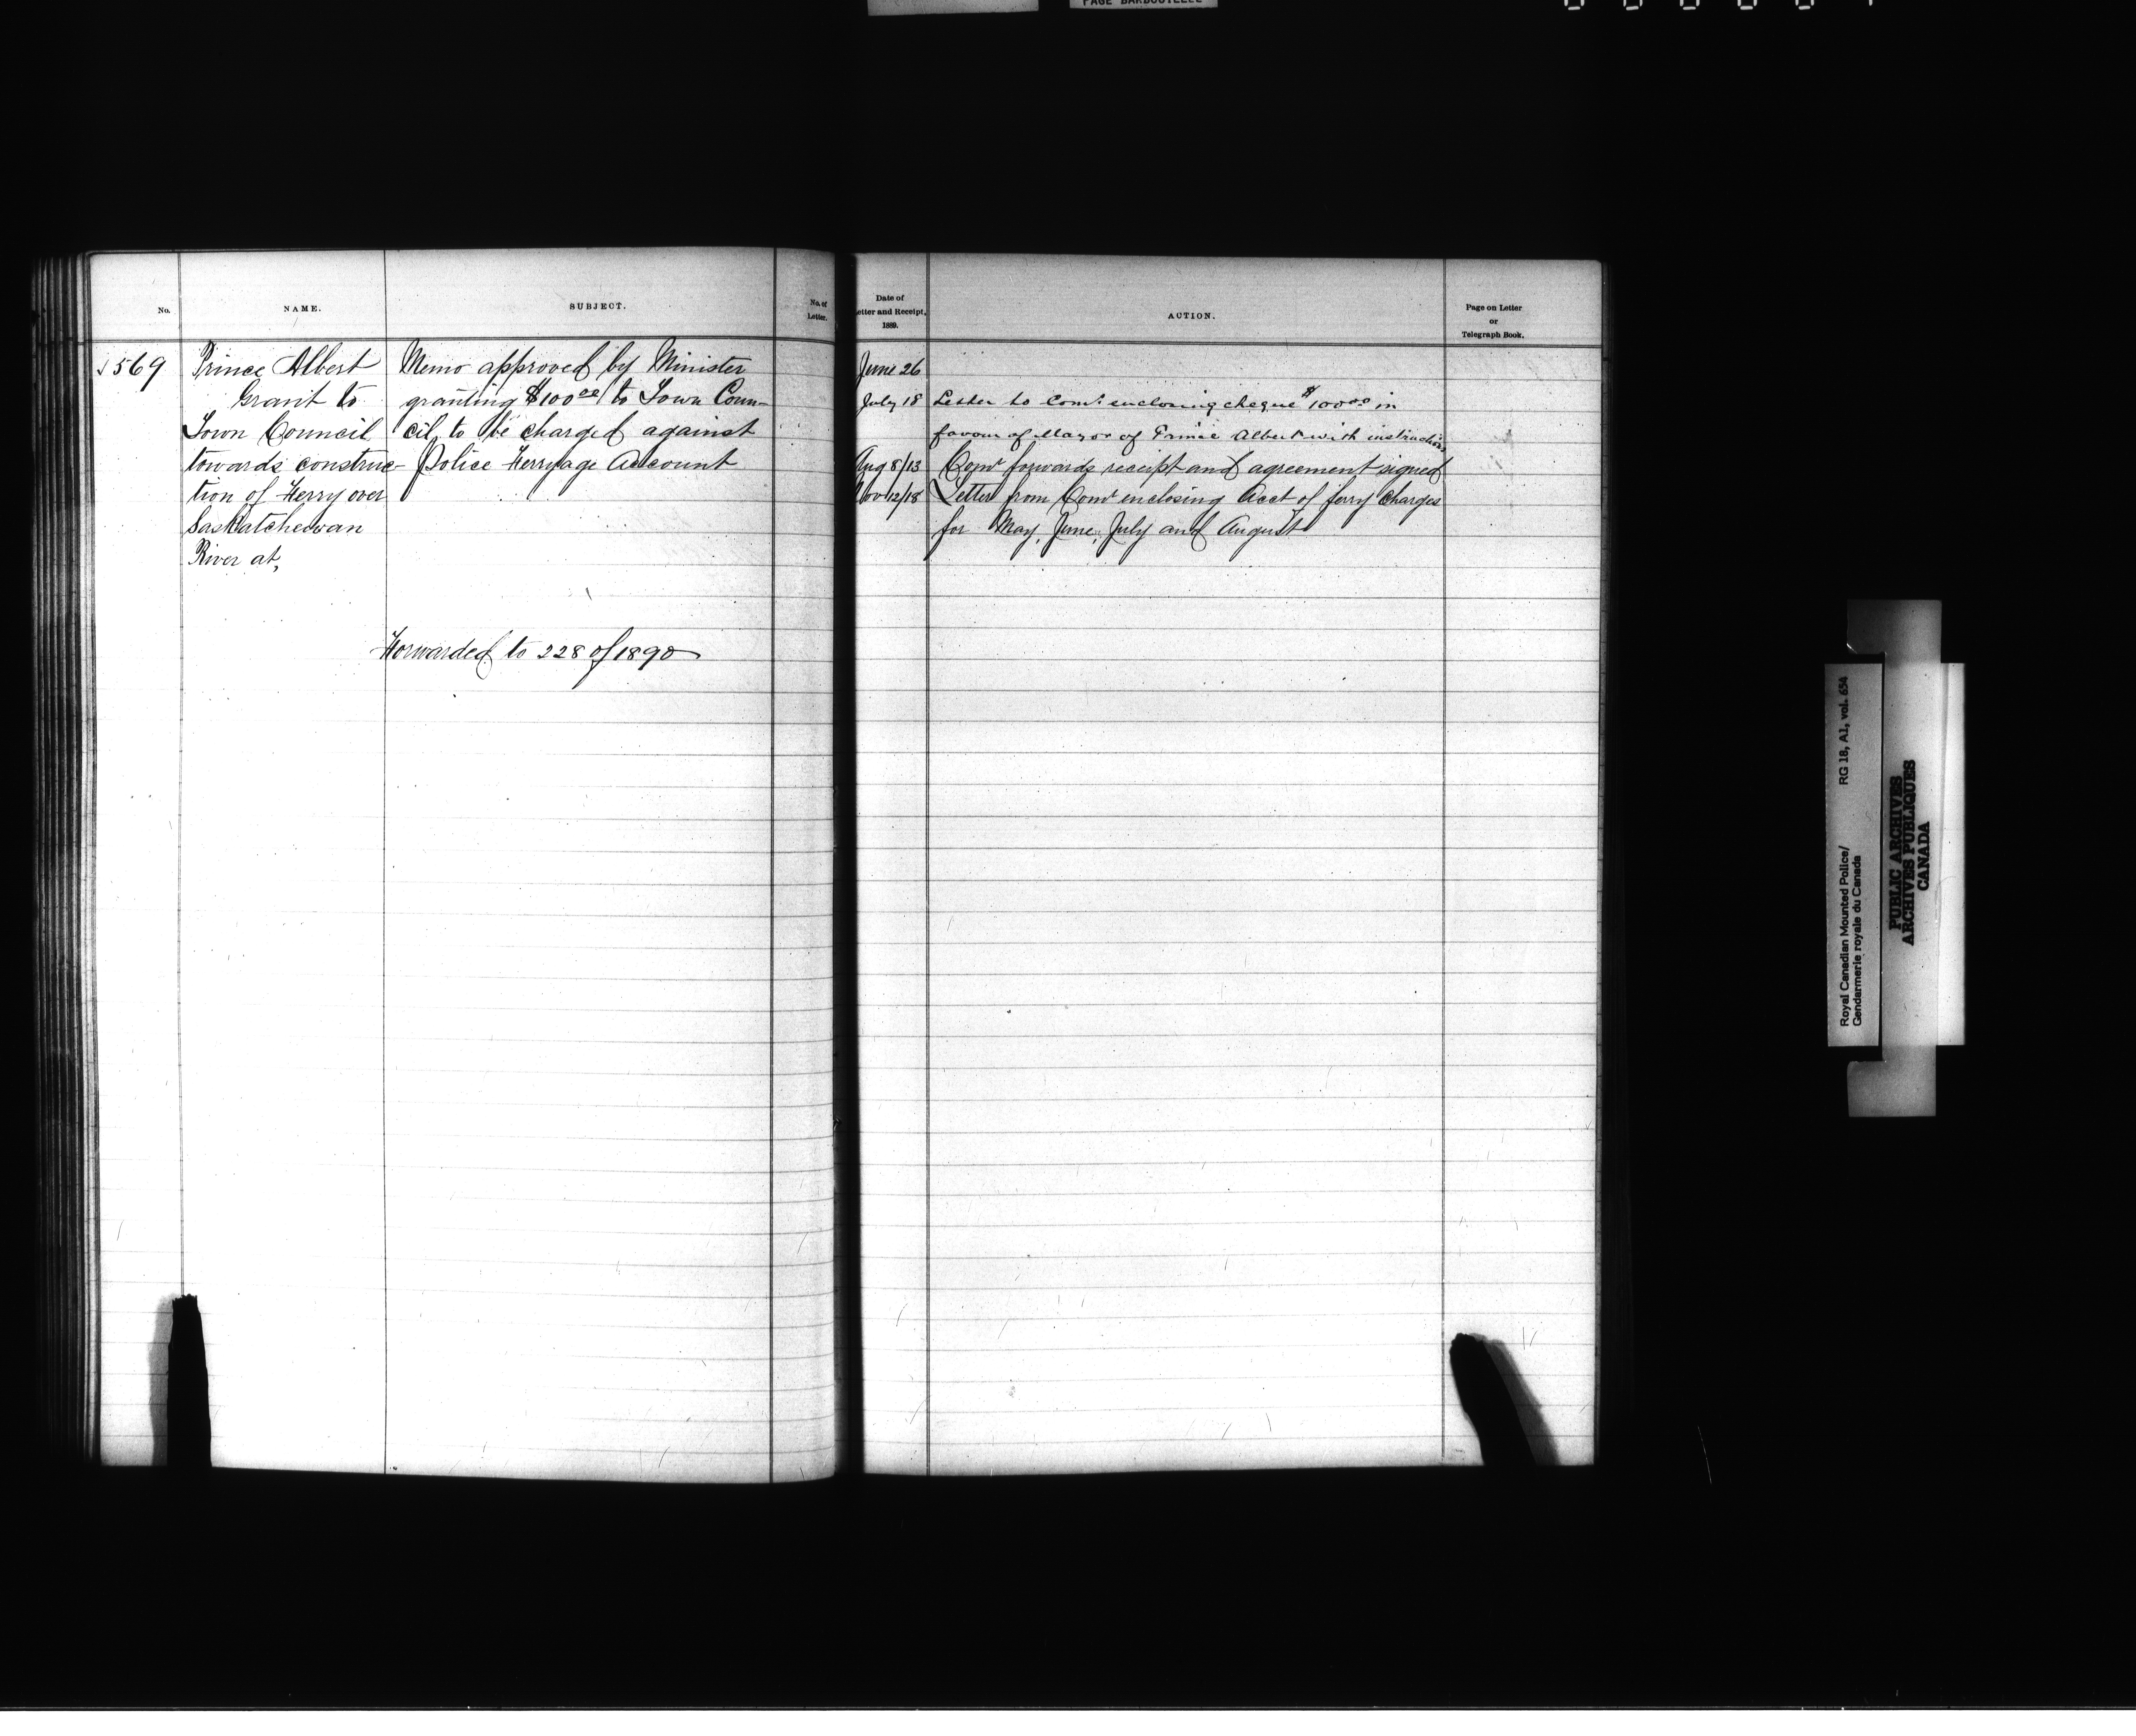 PAGE BARBOUILLEE
No.
NAME.
SUBJECT.
No. of
Letter.
Date of
Letter and Receipt,
1889.
ACTION.
Page on Letter
or
Telegraph Book.
569
Prince Albert
Grant to
Town Council
towards construc-
tion of Ferry over
Saskatchewan
River at,
Memo approved by Minister
granting $100 00 to Town Coun-
cil, to be charged against
Police Ferryage Account
Forwarded to 228 of 1890
June 26
July 18 Letter to Comr. enclosing cheque $100 00 in
favour of Mayor of Prince Albert with instructions
Aug 8/13 Comr forwards receipt and agreement signed
Nov 12/18 Letter from Comr enclosing Acct of ferry charges
for May, June, July and August
Royal Canadian Mounted Police/ RG 18, A1, vol. 654
Gendarmerie royale du Canada
PUBLIC ARCHIVES
ARCHIVES PUBLIQUES
CANADA